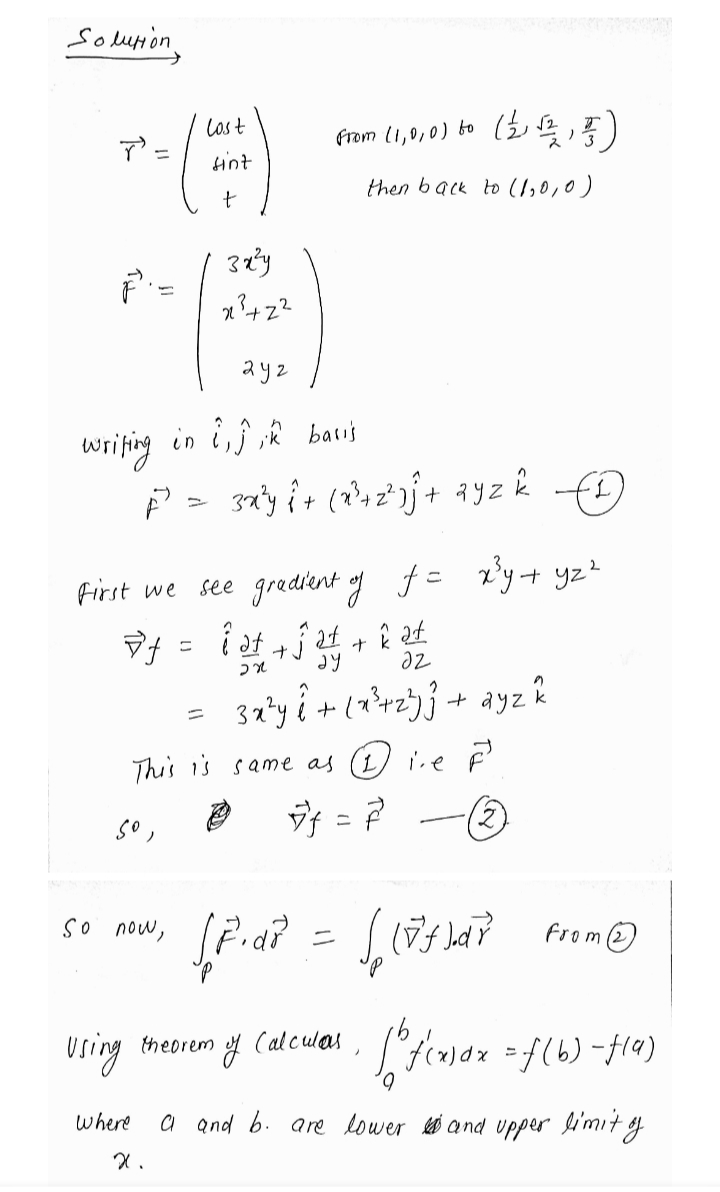 Solution,
r⃗ = ( cost sint t ) from (1,0,0) to (1/2, √2/2, π/3)
then back to (1,0,0)
F⃗ = ( 3x²y x³+z² 2yz )
writing in î, ĵ, k̂ basis
F⃗ = 3x²y î + (x³+z²)ĵ + 2yz k̂ —①
First we see gradient of f = x³y + yz²
∇⃗f = î ∂f/∂x + ĵ ∂f/∂y + k̂ ∂f/∂z
= 3x²y î + (x³+z²)ĵ + 2yz k̂
This is same as ① i.e F⃗
so, ∇⃗f = F⃗ —②
So now, ∫_P F⃗.dr⃗ = ∫_P (∇⃗f).dr⃗ From ②
Using theorem of Calculus, ∫_a^b f'(x)dx = f(b) - f(a)
where a and b. are lower and upper limit of
x.